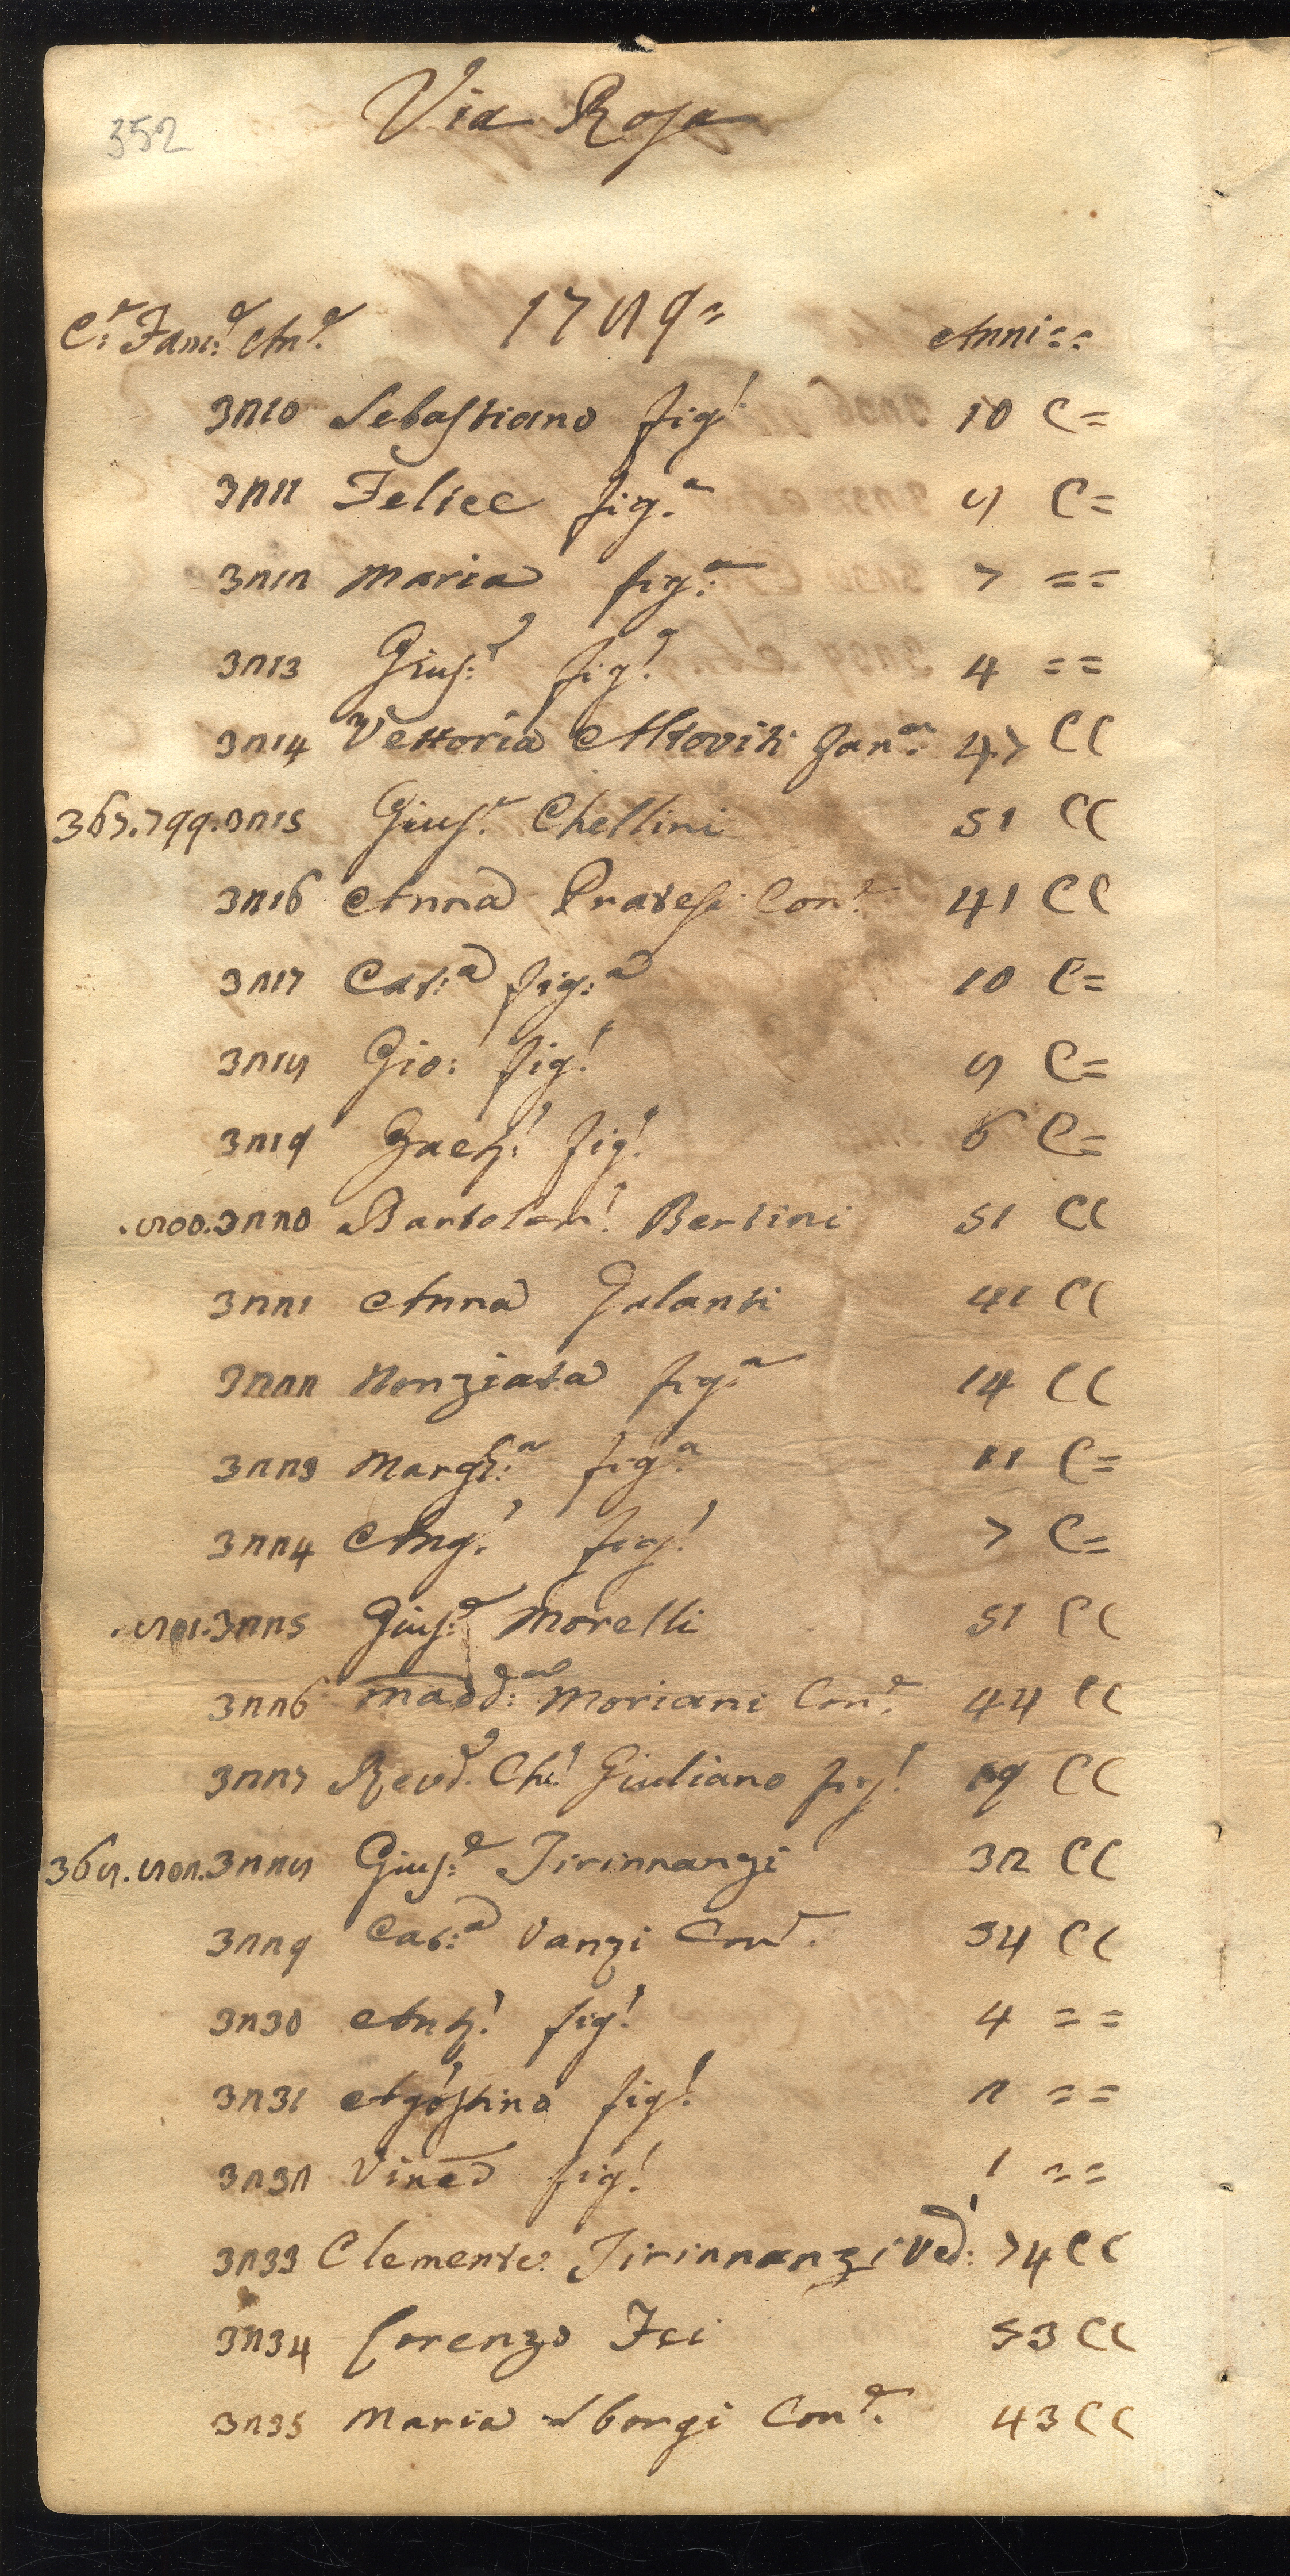 352
Via Rosa
C:e Fam:e An:e 1789= Anni==
3210 Sebastiano fig:o 10 C=
3211 Felice fig:a 8 C=
3212 Maria fig:a 7 ==
3213 Gius:e fig:o 4 ==
3214 Vettoria Altoviti 47 CC
367.799.3215 Gius:e Chellini 51 CC
3216 Anna Pratesi Con:e 41 CC
3217 Cat:a fig:a 10 C=
3218 Gio: fig:o 8 C=
3219 Zach:o fig:o 6 C=
.800.3220 Bartolom:o Bertini 51 CC
3221 Anna Galanti 41 CC
3222 Nonziata fig:a 14 CC
3223 Margh:a fig:a 11 C=
3224 Ang:o fig:o 7 C=
.801.3225 Gius:e Morelli 51 CC
3226 Madd:a Moriani Con:e 44 CC
3227 Revd:o Ch:o Giuliano fig:o 19 CC
368.802.3228 Gius:e Tirinnanzi 32 CC
3229 Cat:a Vanzi Con:e 34 CC
3230 Ant:o fig:o 4 ==
3231 Agostino fig:o 2 ==
3232 Vinc:o fig:o 1 ==
3233 Clemente Tirinnanzi Ved:o 74 CC
3234 Lorenzo Fei 53 CC
3235 Maria Sborgi Con:e 43 CC